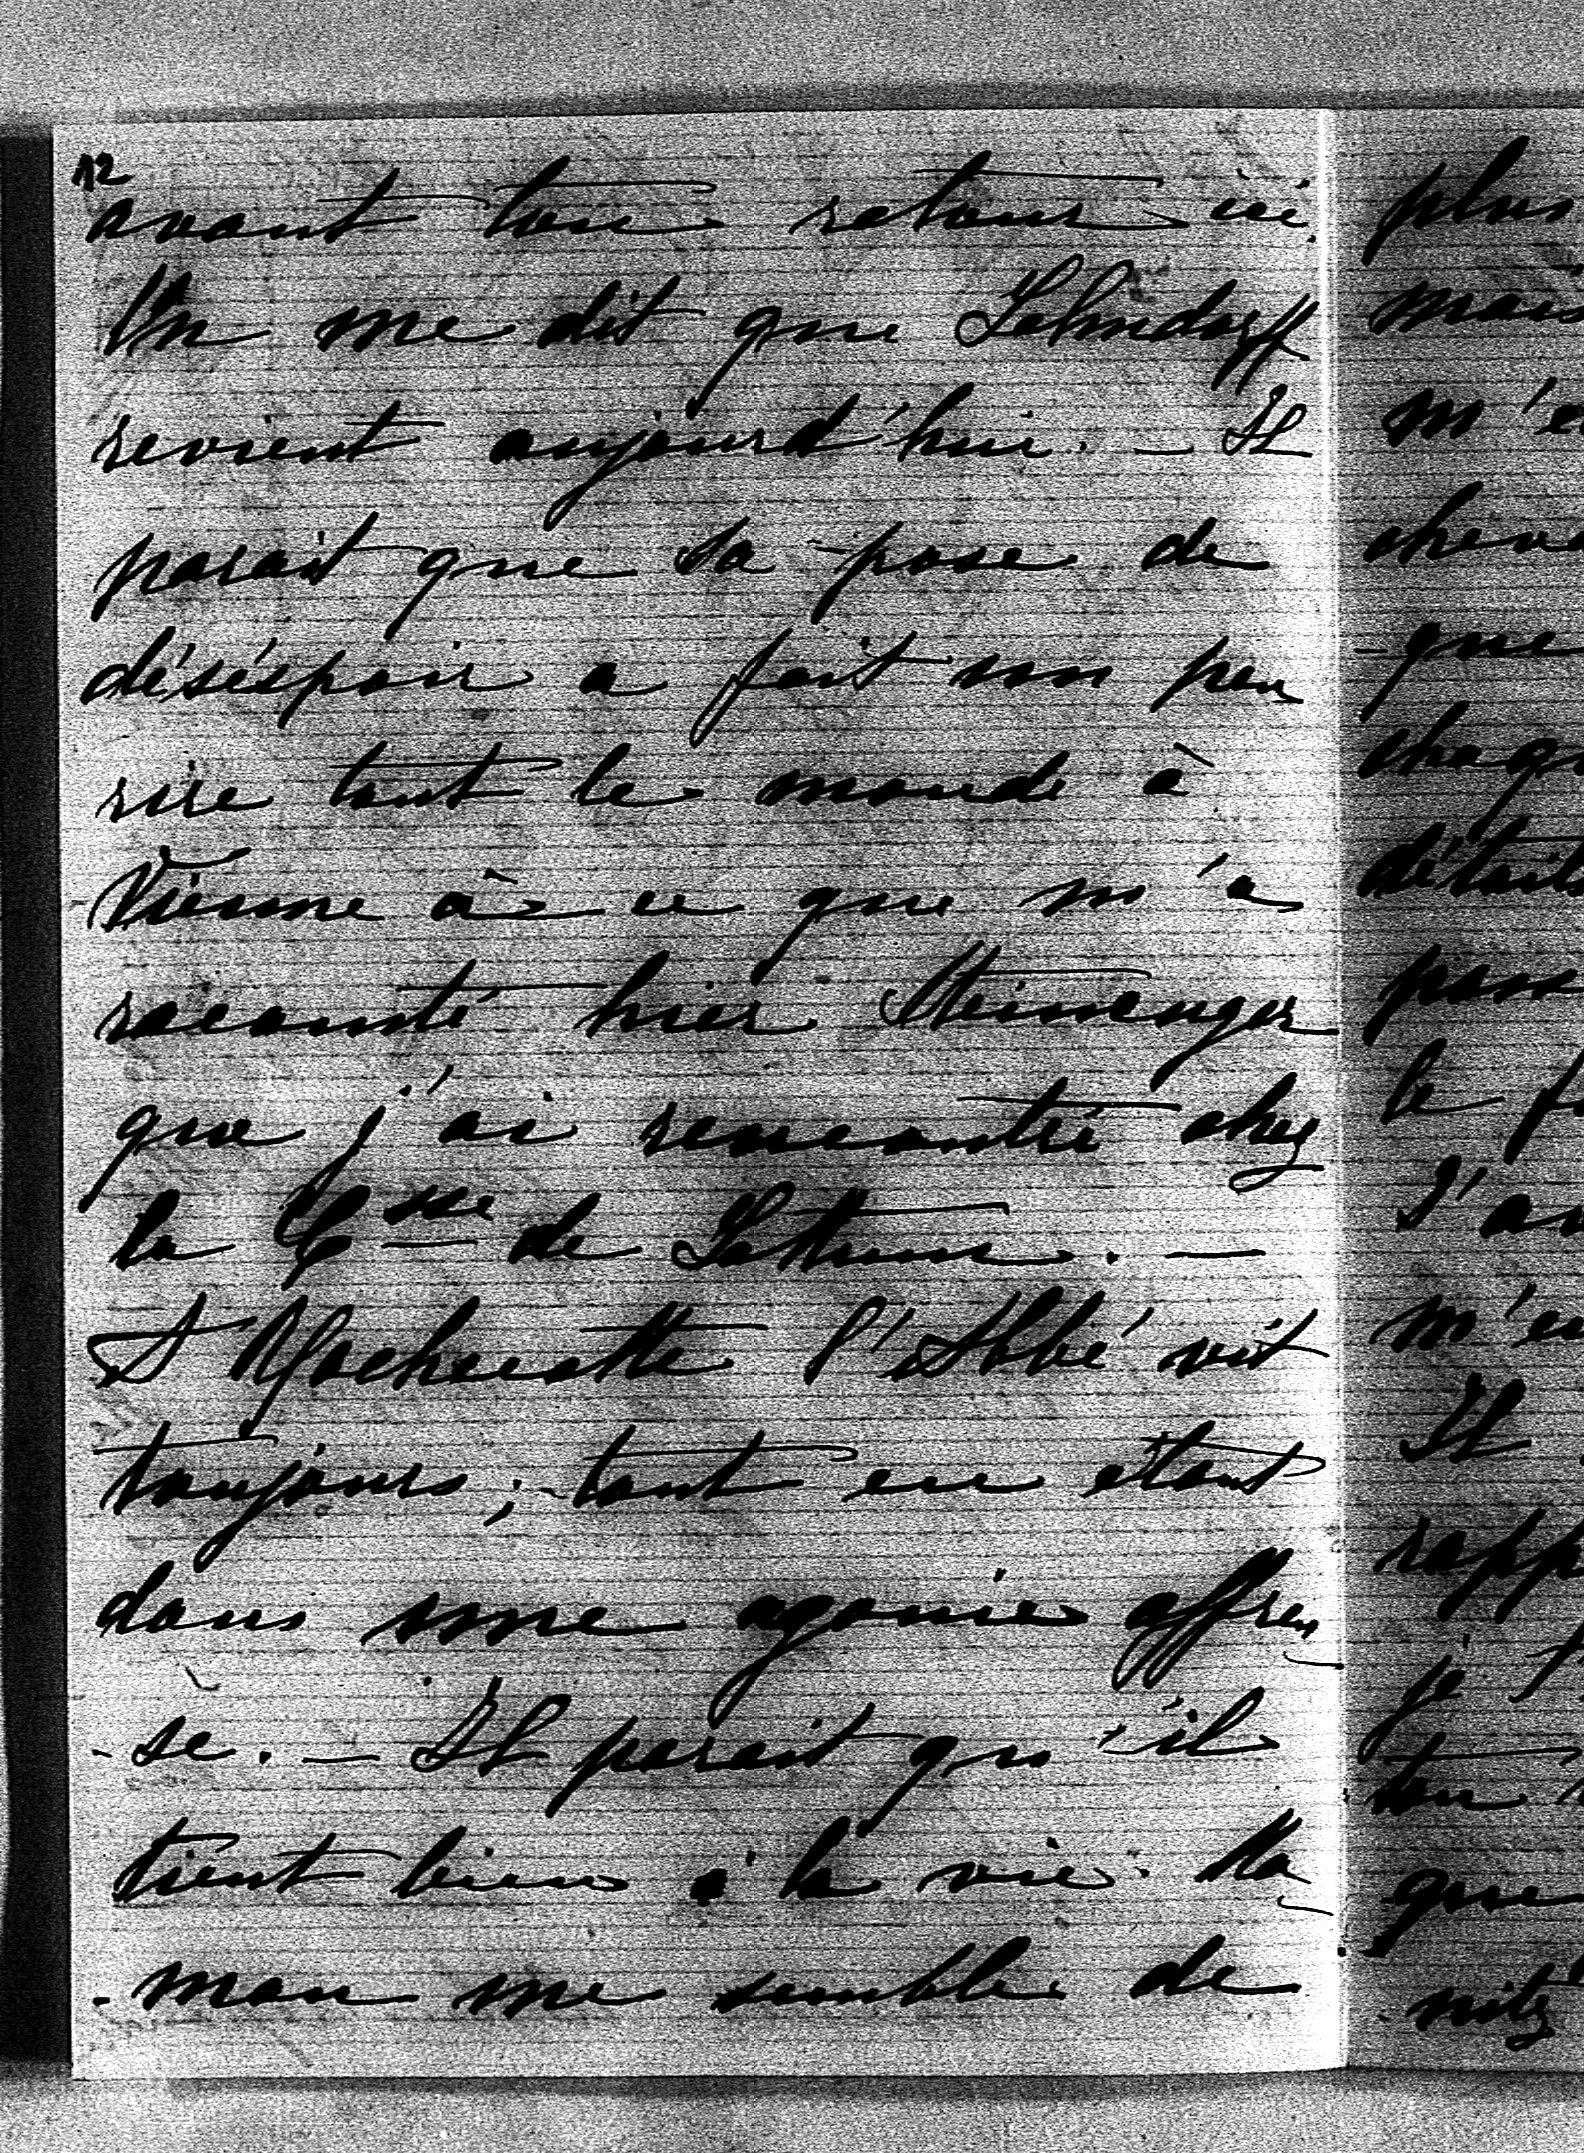 12
avant ton retour ici.
On me dit que Lehndorff
revient aujourd'hui. — Il
parait que sa pose de
déséspoir a fait un peu
rire tout le monde à
Vienne à ce que m'a
raconté hier Steininger
que j'ai rencontré chez
la Csse de
A l'Abbé vit
toujours; tout en etant
dans une agonie affreu
-se. — Il parait qu'il
tient bien à la vie. Ma
-man me semble de
plus
mais
m'e
cheve
que
chaqu
détails
pass
le f
J'av
m'en
Il
rapp
je
ton
que
nitz